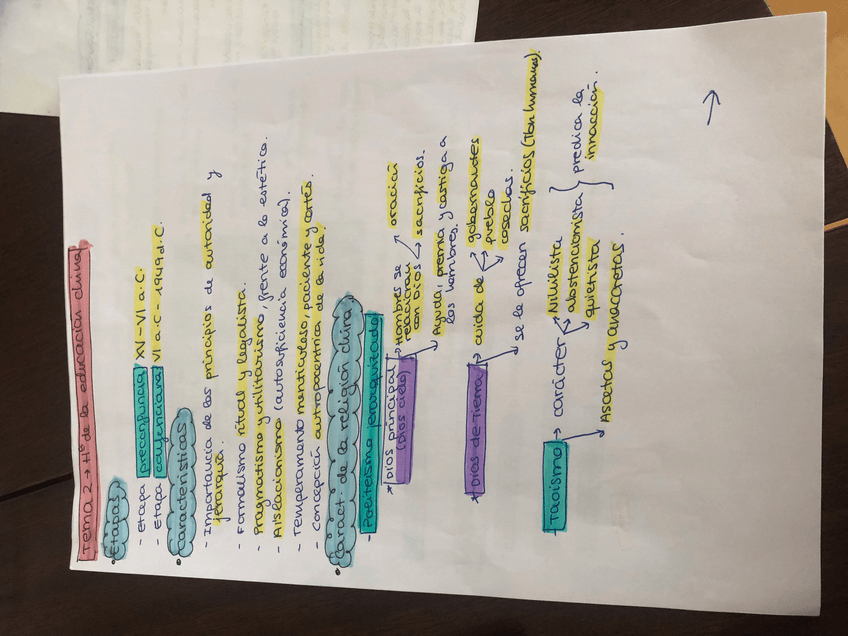 Tema 2 → Hª de la educación china
· Etapas
- Etapa preconfuciana XV-VI a.C.
- Etapa confuciana VI a.C - 1949 d.C.
· Características
- Importancia de los principios de autoridad y
jerarquía.
- Formalismo ritual y legalista.
- Pragmatismo y utilitarismo, frente a lo estético.
- Aislacionismo (autosuficiencia económica).
- Temperamento meticuloso, paciente y cortés.
- Concepción antropocéntrica de la vida.
· Caract de la religión china
- Politeísmo jerarquizado
* Dios principal (Dios cielo) → Hombres se relacionan con Dios → oración
→ sacrificios.
→ Ayuda, premia y castiga a
los hombres.
* Dios de Tierra → cuida de → gobernantes
→ pueblo
→ cosechas.
→ se le ofrecen sacrificios (Non humanos).
Taoísmo → carácter → Nihilista
→ abstencionista
→ quietista
} predica la
innacción.
→ Ascetas y anacoretas.
→